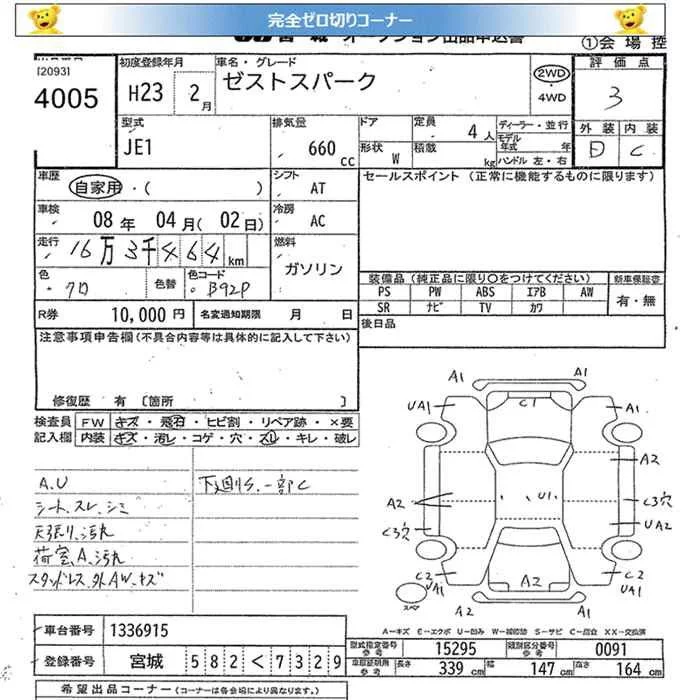 完全ゼロ切りコーナー
宮城 オークション出品申込書
①会場控
[2093]
4005
初度登録年月
H23 2月
車名・グレード
ゼストスパーク
2WD
・
4WD
評価点
3
外装 内装
D C
型式
JE1
排気量
660 cc
ドア
形状 W
定員 4人
積載 kg
ディーラー・並行
モデル年式 年
ハンドル 左・右
車歴
自家用・( )
シフト
AT
セールスポイント (正常に機能するものに限ります)
車検
08年 04月 (02日)
冷房
AC
走行
16万3千464km
燃料
ガソリン
色
クロ
色替
色コード
B92P
装備品 (純正品に限り○をつけてください)
PS PW ABS エアB AW
SR ナビ TV カワ
新車保証書
有・無
R券 10,000円
名変通知期限 月 日
後日品
注意事項申告欄 (不具合内容等は具体的に記入して下さい)
修復歴 有 [箇所 ]
検査員記入欄
FW キズ・飛石・ヒビ割・リペア跡・×要
内装 キズ・汚レ・コゲ・穴・スレ・キレ・破レ
A.U
シート、スレ、シミ
天張り、汚れ
荷室、A、汚れ
スタッドレス、外AW、キズ
下廻りS、一部C
A1 A1
UA1 C1 A1
A2
A2 U1 C3穴
C3穴 UA2
C2 UA1 A2 C2 UA1
スペア A2 A1
A-キズ E-エクボ U-凹み W-補修跡 S-サビ C-腐食 XX-交換済
車台番号 1336915
登録番号 宮城 582く7329
型式指定番号 参考 15295
類別区分番号 参考 0091
車庫証明用 参考 長さ 339cm 幅 147cm 高さ 164cm
希望出品コーナー (コーナーは各会場により異なります。)